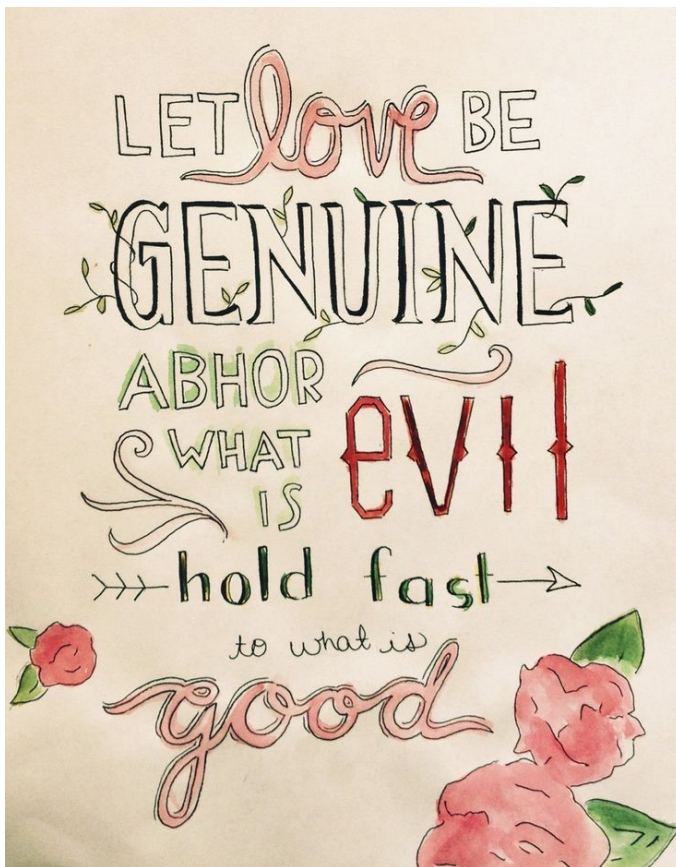 LET love BE
GENUINE
ABHOR
WHAT
IS
evil
hold fast
to what is
good